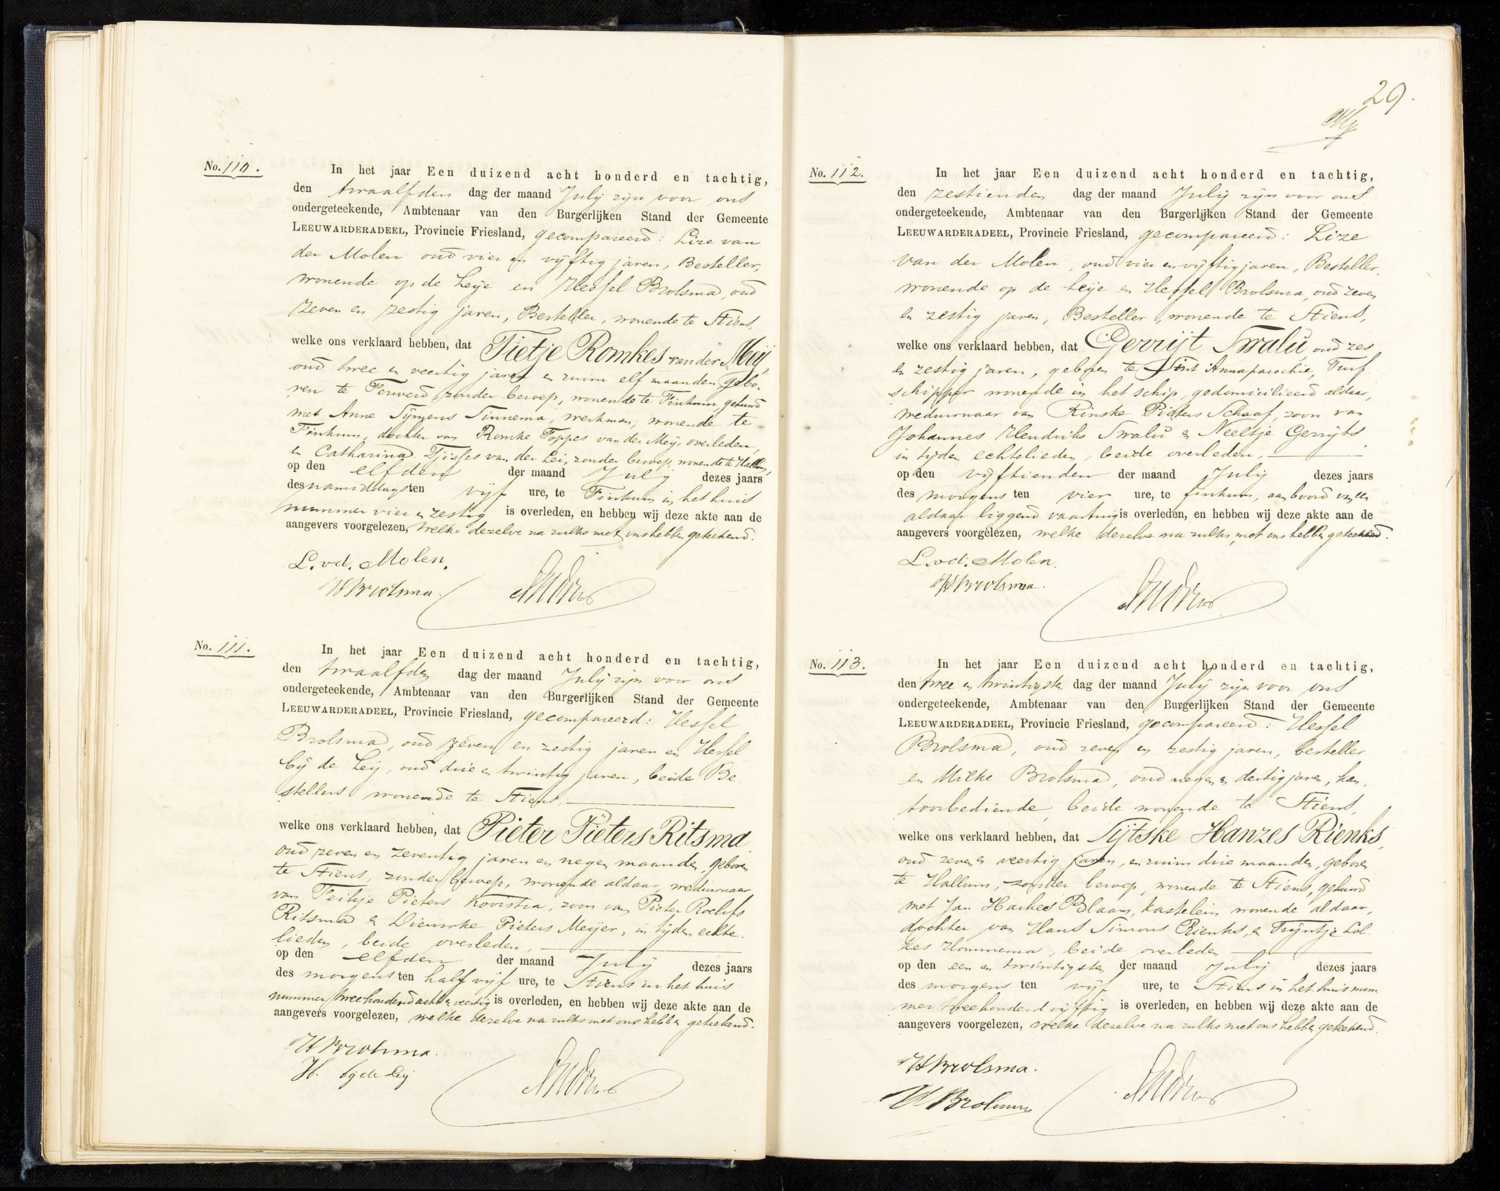 No. 110.
In het jaar Een duizend acht honderd en tachtig,
den twaalfden dag der maand Julij zijn voor ons
ondergeteekende, Ambtenaar van den Burgerlijken Stand der Gemeente
LEEUWARDERADEEL, Provincie Friesland, gecompareerd: Lize van
der Molen oud vier en vijftig jaren, Besteller,
wonende op de Leije en Hessel Brolsma, oud
zeven en zestig jaren, Besteller, wonende te Stiens,
welke ons verklaard hebben, dat Tietje Romkes van der Meij
oud twee en veertig jaren en ruim elf maanden, gebo-
ren te Ferwerd, zonder beroep, wonende te Finkum, gehuwd
met Anne Sijmens Tinnema, werkman, wonende te
Finkum, dochter van Romke Foppes van der Meij, overleden,
en Catharina Tjisses van der Lei, zonder beroep, wonende te Hallum,
op den elfden der maand Julij dezes jaars
des namiddags ten vijf ure, te Finkum in het huis
nummer vier en zestig is overleden, en hebben wij deze akte aan de
aangevers voorgelezen, welke dezelve na zulks met ons hebben geteekend.
L. v.d. Molen.
H Brolsma.
No. 111.
In het jaar Een duizend acht honderd en tachtig,
den twaalfden dag der maand Julij zijn voor ons
ondergeteekende, Ambtenaar van den Burgerlijken Stand der Gemeente
LEEUWARDERADEEL, Provincie Friesland, gecompareerd: Hessel
Brolsma, oud zeven en zestig jaren en Hessel
bij de Leij, oud drie en twintig jaren, beide Be
stellers wonende te Stiens
welke ons verklaard hebben, dat Pieter Pieters Ritsma
oud zeven en zeventig jaren en negen maanden, geboren
te Stiens, zonder beroep, wonende aldaar, weduwnaar
van Feitje Pieters, zoon van Pieter Roelofs
Ritsma en Dieuwke Pieters Meijer, in tijden echte-
lieden, beide overleden,
op den elfden der maand Julij dezes jaars
des morgens ten half vijf ure, te Stiens in het huis
nummer twee honderd acht en veertig is overleden, en hebben wij deze akte aan de
aangevers voorgelezen, welke dezelve na zulks met ons hebben geteekend.
H Brolsma.
H. bij de Leij
29.
No. 112.
In het jaar Een duizend acht honderd en tachtig,
den zestienden dag der maand Julij zijn voor ons
ondergeteekende, Ambtenaar van den Burgerlijken Stand der Gemeente
LEEUWARDERADEEL, Provincie Friesland, gecompareerd: Lize
van der Molen, oud vier en vijftig jaren, Besteller,
wonende op de Leije en Hessel Brolsma, oud zeven
en zestig jaren, Besteller, wonende te Stiens,
welke ons verklaard hebben, dat Gerrijt Swalu oud zes
en zestig jaren, geboren te Sint Annaparochie, Turf
schipper wonende in het schip, gedomicilieerd aldaar,
weduwnaar van Rinske Pieters Schaaf, zoon van
Johannes Hendriks Swalu en Neeltje Gerrijts
in tijden echtelieden, beide overleden,
op den vijftienden der maand Julij dezes jaars
des morgens ten vier ure, te Finkum, aan boord van een
aldaar liggend vaartuig is overleden, en hebben wij deze akte aan de
aangevers voorgelezen, welke dezelve na zulks met ons hebben geteekend.
L. v.d. Molen
H Brolsma.
No. 113.
In het jaar Een duizend acht honderd en tachtig,
den twee en twintigste dag der maand Julij zijn voor ons
ondergeteekende, Ambtenaar van den Burgerlijken Stand der Gemeente
LEEUWARDERADEEL, Provincie Friesland, gecompareerd: Hessel
Brolsma, oud zeven en zestig jaren, besteller
en Wilke Brolsma, oud negen en dertig jaren, kan-
toorbediende, beide wonende te Stiens,
welke ons verklaard hebben, dat Sijtske Hanzes Rienks,
oud zeven en veertig jaren, en ruim drie maanden, geboren
te Hallum, zonder beroep, wonende te Stiens, gehuwd
met Jan Blaauw, kastelein, wonende aldaar,
dochter van Hans Simons Rienks, en Trijntje Dol-
zes Hommema, beide overleden
op den een en twintigste der maand Julij dezes jaars
des morgens ten vijf ure, te Stiens in het huis num
mer tweehonderd vijftig is overleden, en hebben wij deze akte aan de
aangevers voorgelezen, welke dezelve na zulks met ons hebben geteekend.
H Brolsma.
W Brolsma